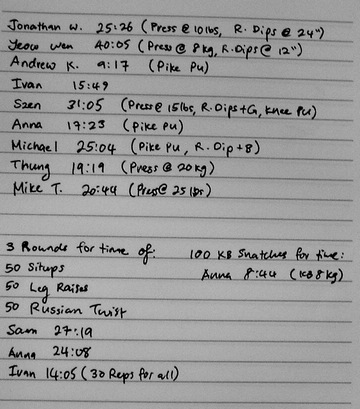 Jonathan W. 25:26 (Press @ 10lbs, R. Dips @ 24")
Yeow Wen 40:05 (Press @ 8kg, R. Dips @ 12")
Andrew K. 9:17 (Pike Pu)
Ivan 15:49
Szen 31:05 (Press @ 15lbs, R. Dips+G, Knee PU)
Anna 17:23 (Pike PU)
Michael 25:04 (Pike PU, R. Dip+B)
Thung 19:19 (Press @ 20kg)
Mike T. 20:44 (Press @ 25lbs)
3 Rounds for time of: 100 KB Snatches for time:
50 Situps Anna 8:44 (KB 8kg)
50 Leg Raises
50 Russian Twist
Sam 27:19
Anna 24:08
Ivan 14:05 (30 Reps for all)